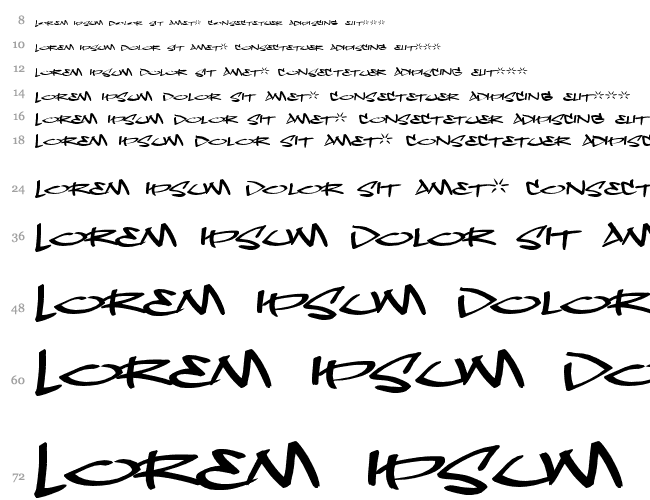 8 LOREM IPSUM DOLOR SIT AMET* CONSECTETUER ADIPISCING ELIT***
10 LOREM IPSUM DOLOR SIT AMET* CONSECTETUER ADIPISCING ELIT***
12 LOREM IPSUM DOLOR SIT AMET* CONSECTETUER ADIPISCING ELIT***
14 LOREM IPSUM DOLOR SIT AMET* CONSECTETUER ADIPISCING ELIT***
16 LOREM IPSUM DOLOR SIT AMET* CONSECTETUER ADIPISCING ELIT
18 LOREM IPSUM DOLOR SIT AMET* CONSECTETUER ADIPISC
24 LOREM IPSUM DOLOR SIT AMET* CONSECT
36 LOREM IPSUM DOLOR SIT AM
48 LOREM IPSUM DOLOR
60 LOREM IPSUM DO
72 LOREM IPSUM